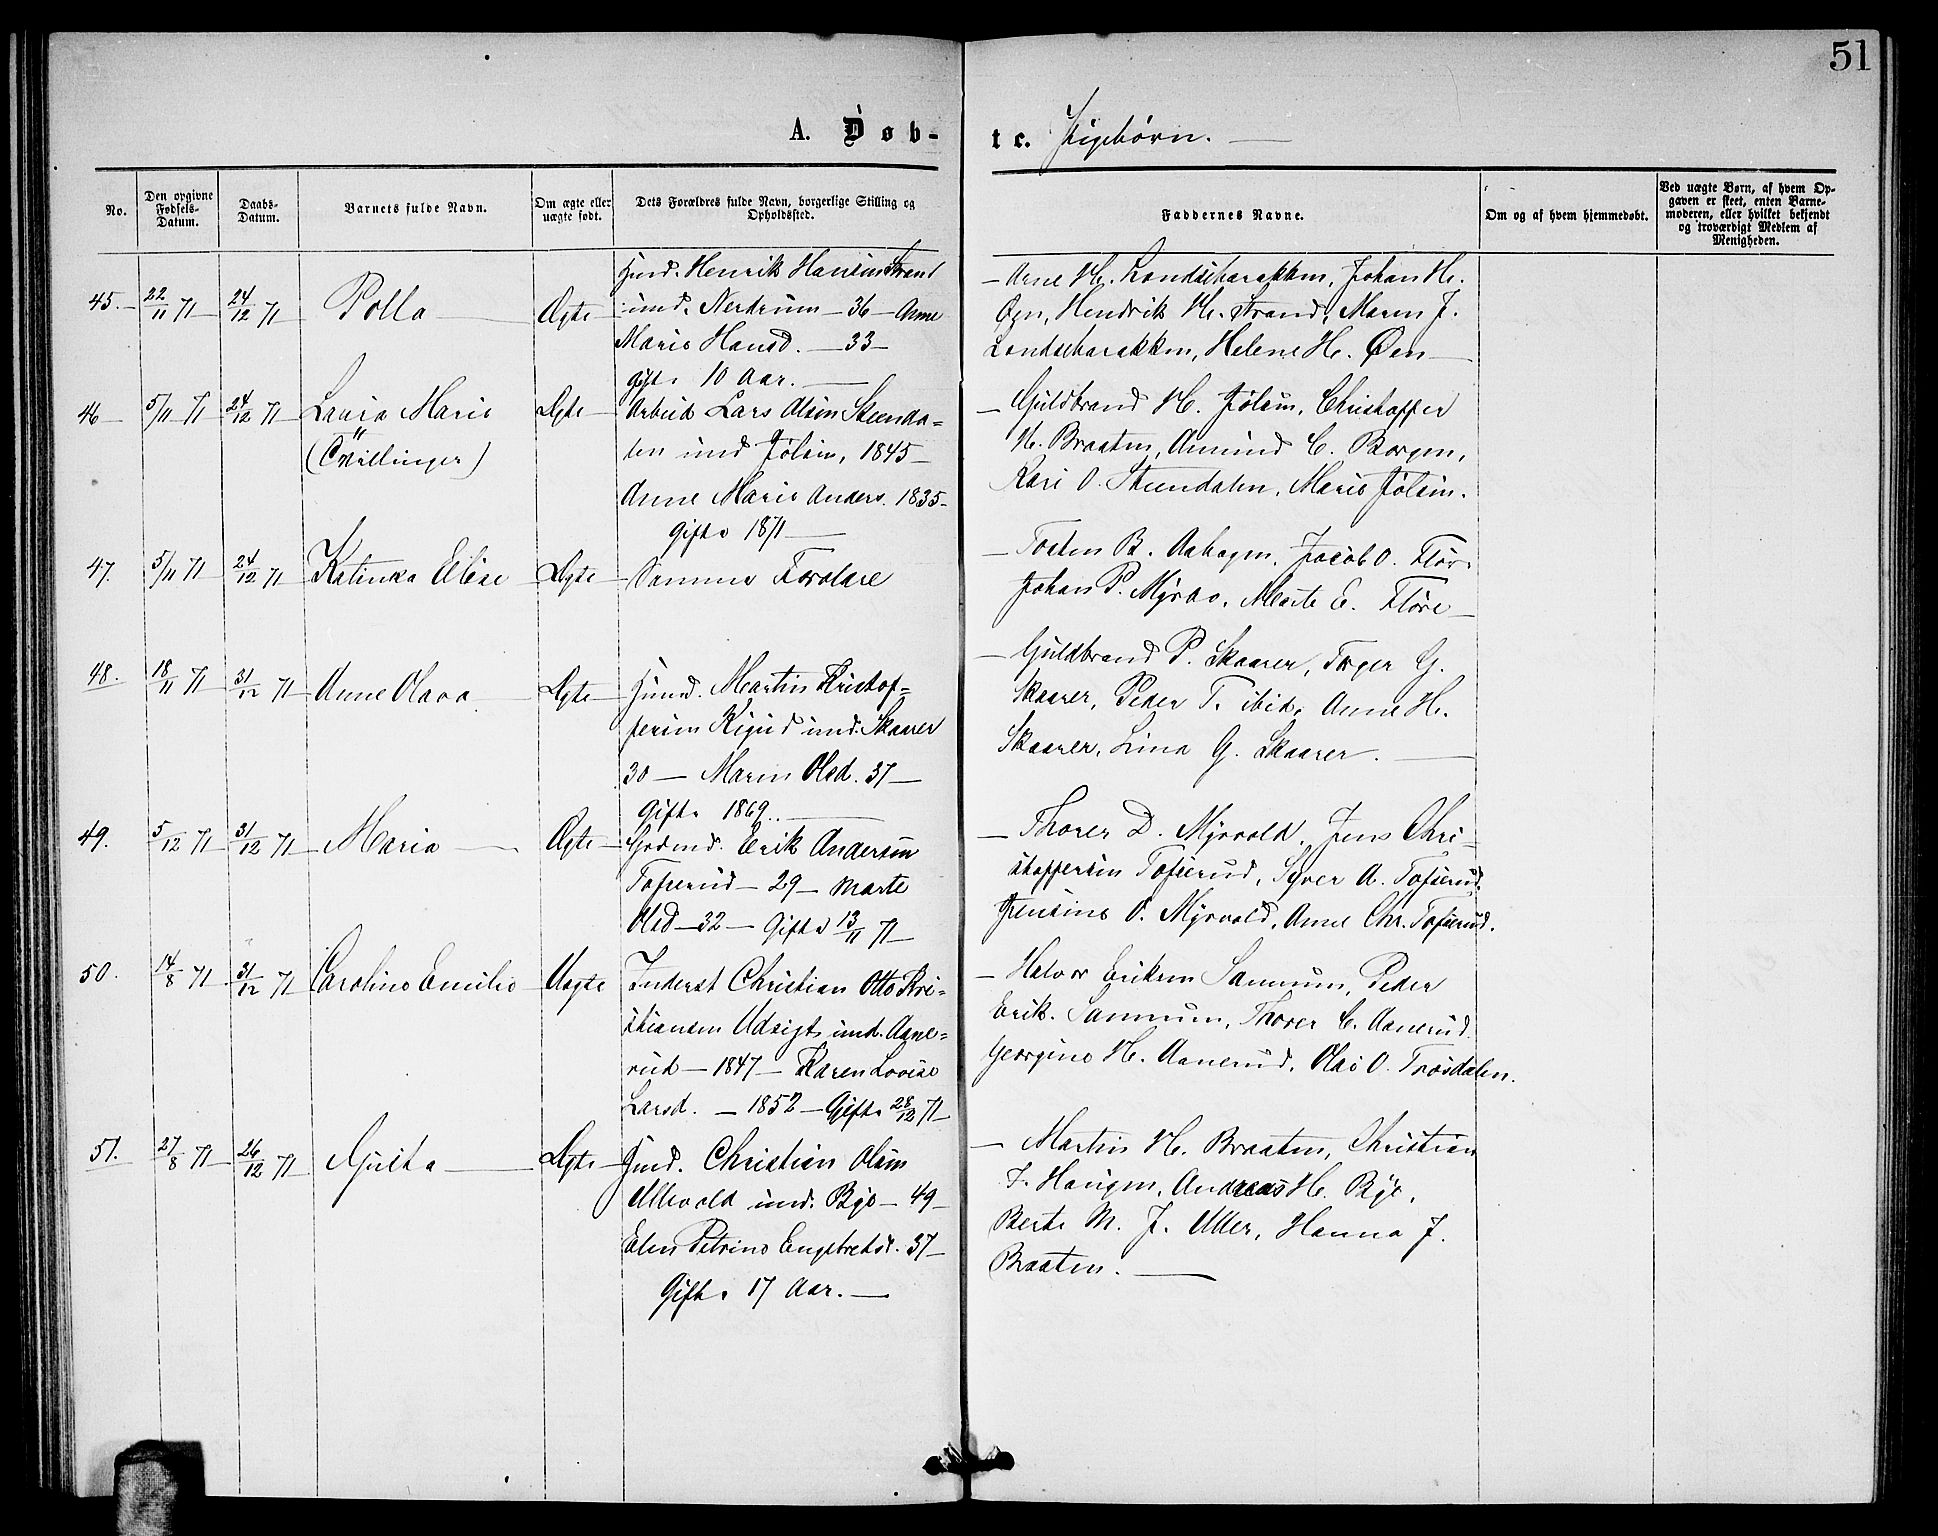 51
A. Døb-
t c. Pigebørn.
No.
Den opgivne
Fødsels-
Datum.
Daabs-
Datum.
Barnets fulde Navn.
Om ægte eller
uægte født.
Dets Forældres fulde Navn, borgerlige Stilling og
Opholdssted.
Faddernes Navne.
Om og af hvem hjemmedøbt.
Ved uægte Børn, af hvem Op-
gaven er skeet, enten Barne-
moderen, eller hvilket bekjendt
og troværdigt Medlem af
Menigheden.
45. 22/11 71 24/12 71 Polla Ægte
Husmd. Henrik Hansen Strand
und. Nerdrum – 36 – Anne
Marie Hansd. – 33 –
Gift 10 Aar.
– Arne H. Londsebarakken, Johan H.
Øgn, Hendrik H. Strand, Maren J.
Londsebarakken, Helene H. Øen –
46 5/11 71 24/12 71 Laura Marie Ægte
(Tvillinger)
Arbeid Lars Olsen Steenda-
len und Jølsen, 1845 –
Anne Marie Anders. 1835 –
Gifte 1871 –
– Guldbrand H. Jølsen, Christoffer
H. Braaten, Amund C. Borgen,
Kari O. Steendalen, Marie Jølsen.
47. 5/11 71 24/12 71 Katinka Elise Ægte Samme Forældre
– Tosten B. Aahagen, Jacob O. Flør.
Johan P. Myrbo, Marte E. Fløre –
48. 18/11 71 31/12 71 Anne Olava Ægte
Husmd. Martin Kristof-
fersen Rigud und. Skaarer
30 – Maren Olsd. 37 –
Gifte 1869.
– Guldbrand P. Skaarer, Trger G.
Skaarer, Peder T. ibid, Anne H.
Skaarer, Lina G. Skaarer.
49. 5/12 71 31/12 71 Maria Ægte
Grdmd. Erik Andersen
Tofserud – 29 – Marte
Olsd – 32 – Gifte 13/11 71 –
– Thorer D. Myrvold, Jens Chri-
stoffersen Tofserud, Syver A. Tofserud,
Jensine O. Myrvold, Anne Chr. Tofserud.
50. 14/8 71 31/12 71 Caroline Emilie Uægte
Inderst Christian Otto Kri-
stiansen Udsigt und. Aane-
rud – 1847 – Karen Lovise
Larsd. – 1852 – Gifte 28/12 71 –
– Halvor Eriksen Sannum, Peder
Erik. Sannum, Thorer C. Aanerud.
Georgine H. Aanerud, Olas O. Trosdalen.
51. 27/8 71 26/12 71 Gusta Ægte
Husmd. Christian Olsen
Ullevold und. Bye – 49 –
Elen Petrine Engebretsd. 37 –
Gifte 17 Aar. –
– Martin H. Braaten, Christian
J. Haugen, Andreas H. Bye,
Berte M. J. Uller, Hanna J.
Braaten. –